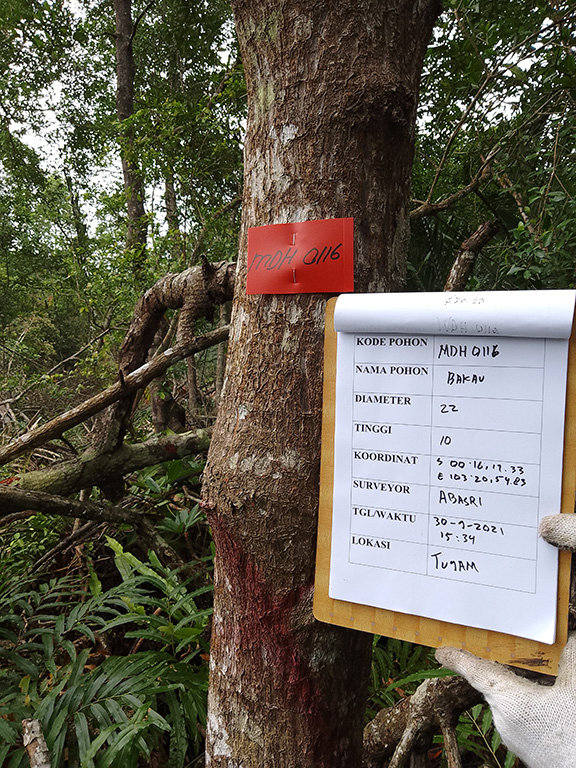 MDH 0116
MDH 0116
KODE POHON MDH 0116
NAMA POHON BAKAU
DIAMETER 22
TINGGI 10
KOORDINAT S 00.16,17.33
E 103.20,54.83
SURVEYOR ABASRI
TGL/WAKTU 30-9-2021
15:34
LOKASI TUNAM